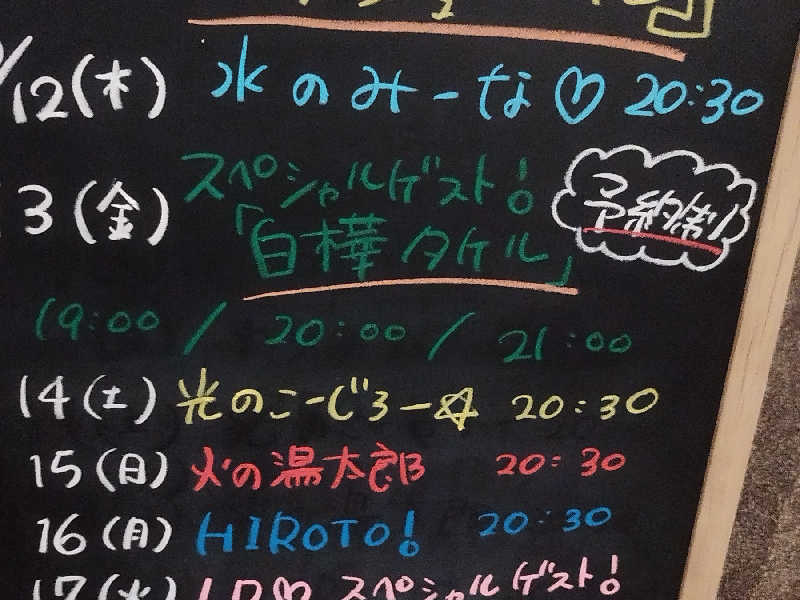 /12(木) 水のみーな♡ 20:30
3(金) スペシャルゲスト! 予約制
「白樺タケル」
19:00 / 20:00 / 21:00
14(土) 光のこーじろー☆ 20:30
15(日) 火の湯太郎 20:30
16(月) HIROTO! 20:30
17(火) スペシャルゲスト!